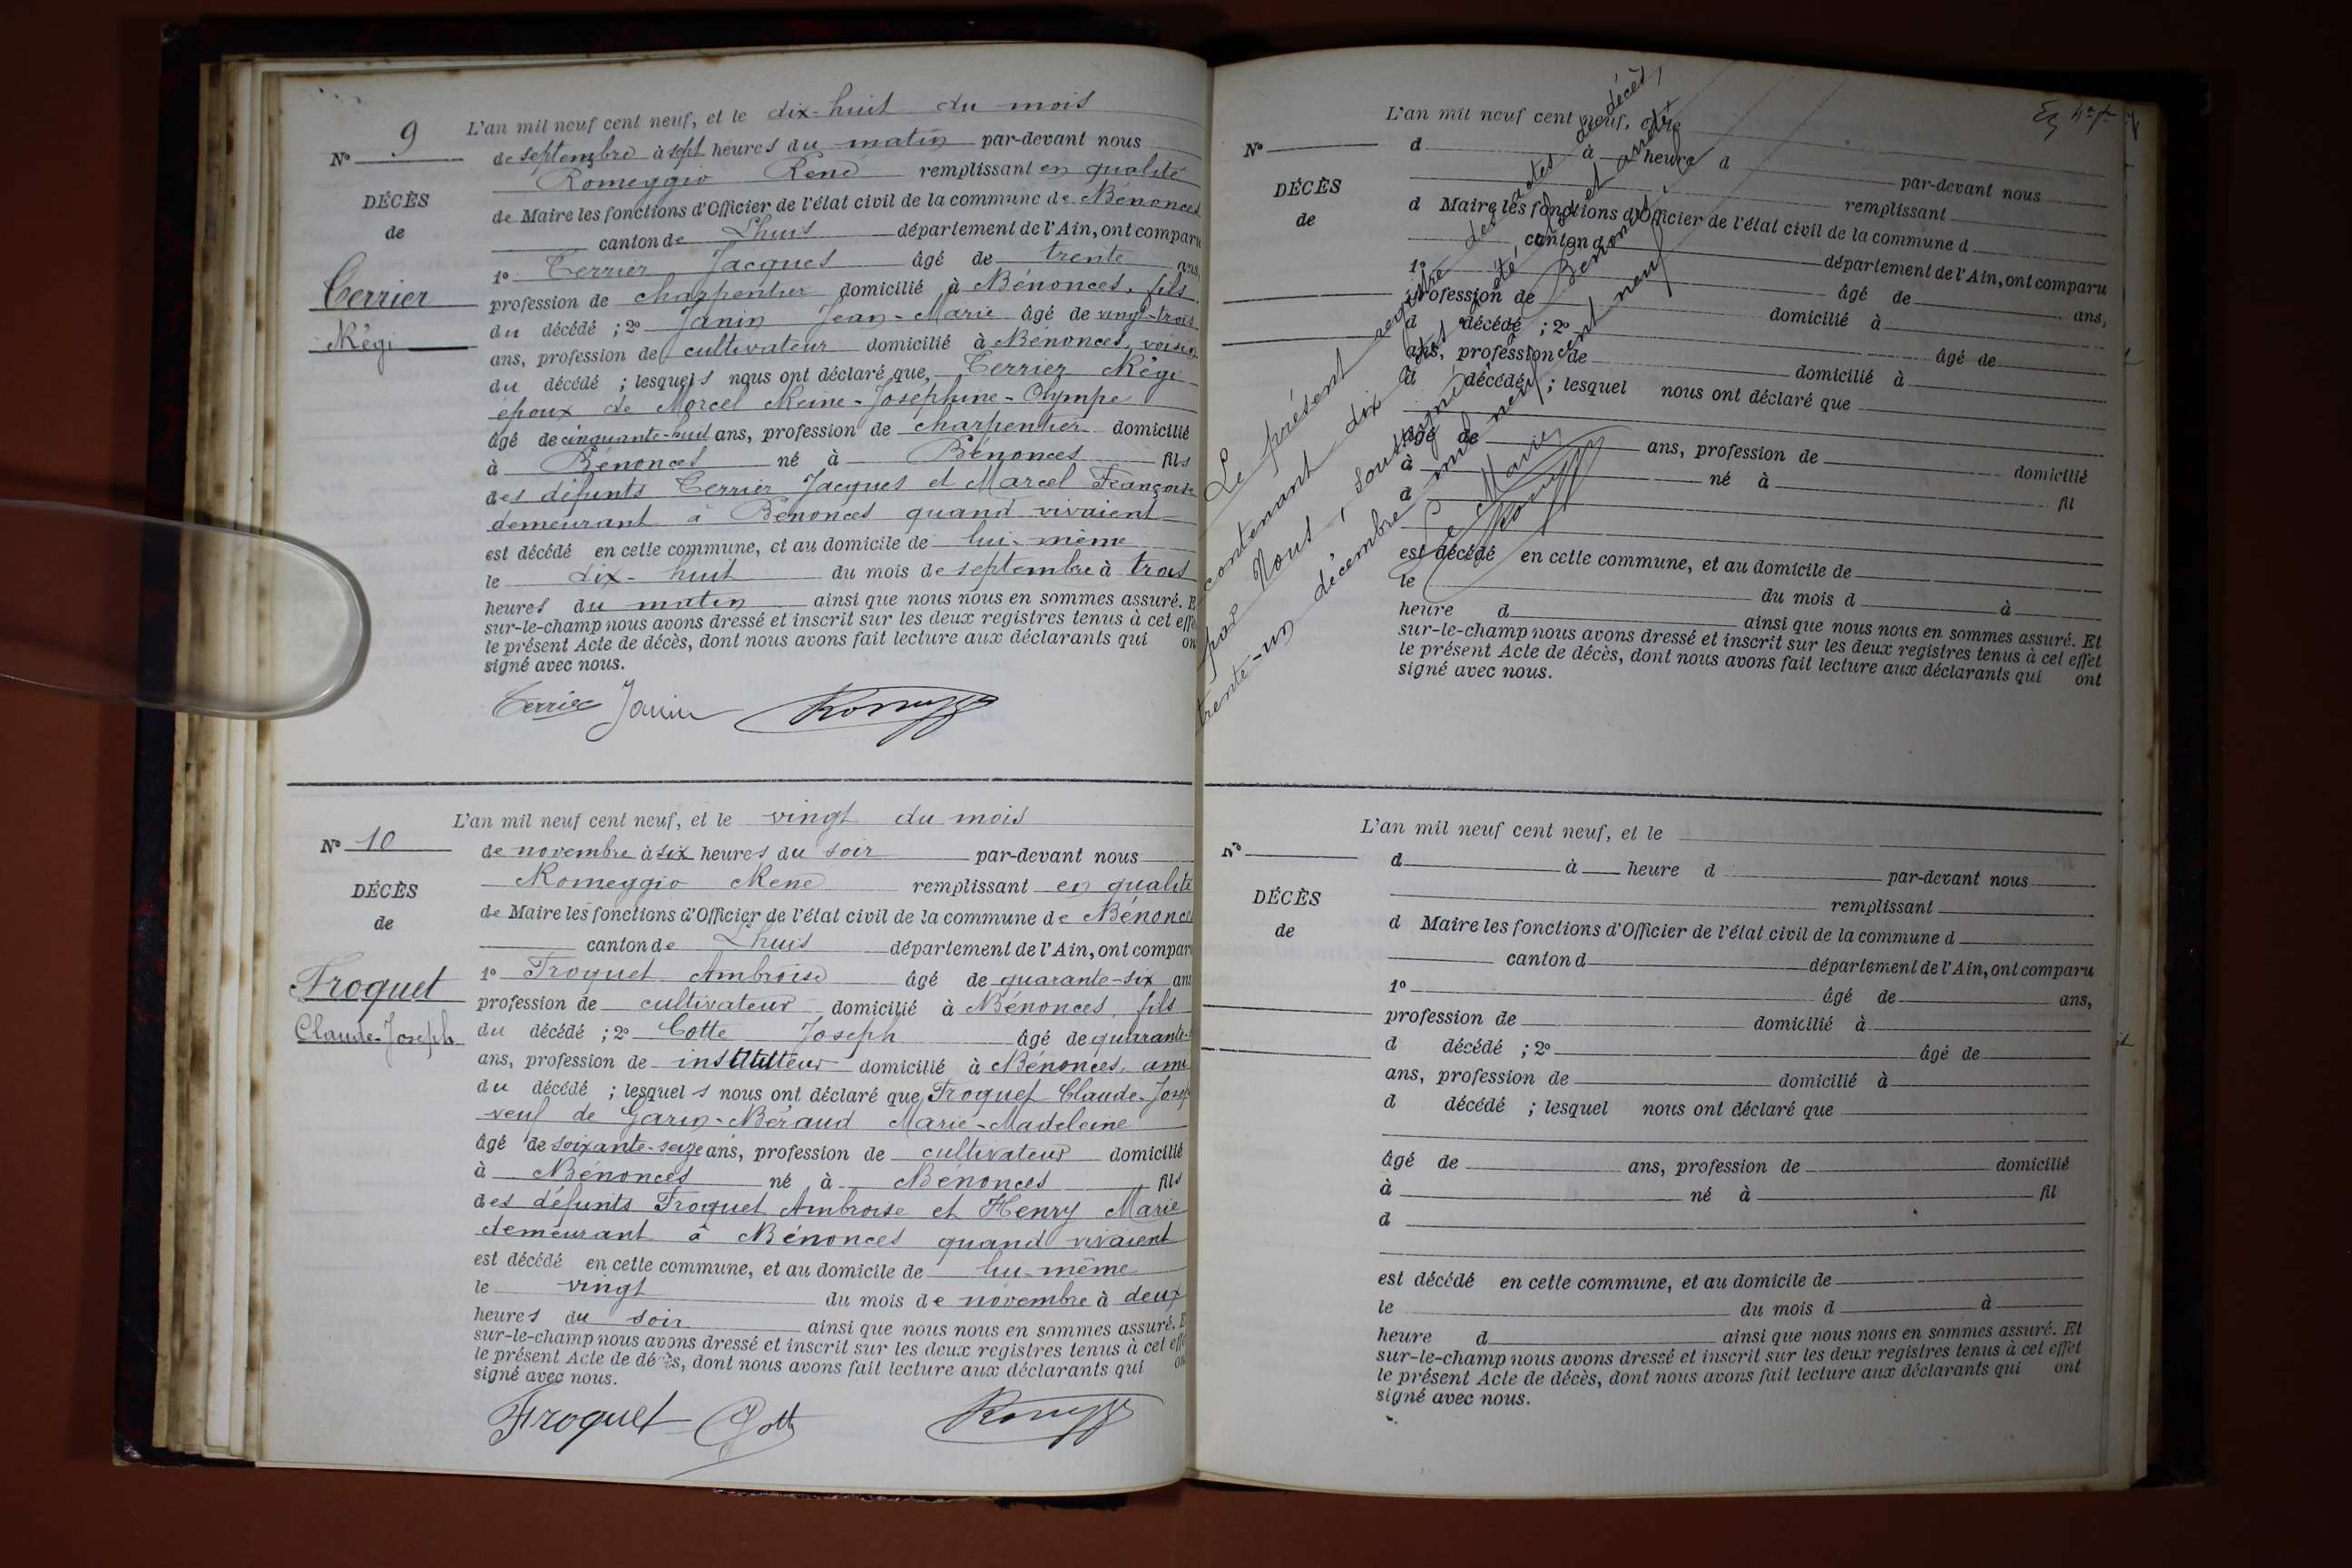 L'an mil neuf cent neuf, et le dix-huit du mois
N° 9
de septembre à sept heures du matin par-devant nous
Romeggio René remplissant en qualité
DÉCÈS
de Maire les fonctions d'Officier de l'état civil de la commune de Bénonces
de
canton de Lhuis département de l'Ain, ont comparu
1° Terrier Jacques âgé de trente ans,
Terrier
profession de charpentier domicilié à Bénonces, fils
Régi
du décédé ; 2° Janin Jean-Marie âgé de vingt-trois
ans, profession de cultivateur domicilié à Bénonces, voisin
du décédé ; lesquels nous ont déclaré que, Terrier Régi
époux de Morcel Reine-Joséphine-Olympe
âgé de cinquante-huit ans, profession de charpentier domicilié
à Bénonces né à Bénonces fils
des défunts Terrier Jacques et Marcel Françoise
demeurant à Bénonces quand vivaient
est décédé en cette commune, et au domicile de lui-même
le dix-huit du mois de septembre à trois
heures du matin ainsi que nous nous en sommes assuré. E
sur-le-champ nous avons dressé et inscrit sur les deux registres tenus à cet effe
le présent Acte de décès, dont nous avons fait lecture aux déclarants qui on
signé avec nous.
Terrier Janin
L'an mil neuf cent neuf, et le vingt du mois
N° 10
de novembre à six heures du soir par-devant nous
Romeggio René remplissant en qualité
DÉCÈS
de Maire les fonctions d'Officier de l'état civil de la commune de Bénonces
de
canton de Lhuis département de l'Ain, ont compar
1° Froquet Ambroise âgé de quarante-six ans
Froquet
profession de cultivateur domicilié à Bénonces, fils
Claude-Joseph
du décédé ; 2° Cotte Joseph âgé de quarante-
ans, profession de instituteur domicilié à Bénonces, ami
du décédé ; lesquels nous ont déclaré que, Froquet Claude-Josep
veuf de Garin-Béraud Marie-Madeleine
âgé de soixante-seize ans, profession de cultivateur domicilié
à Bénonces né à Bénonces fils
des défunts Froquet Ambroise et Henry Marie
demeurant à Bénonces quand vivaient
est décédé en cette commune, et au domicile de lui-même
le vingt du mois de novembre à deux
heures du soir ainsi que nous nous en sommes assuré. E
sur-le-champ nous avons dressé et inscrit sur les deux registres tenus à cet effe
le présent Acte de décès, dont nous avons fait lecture aux déclarants qui on
signé avec nous.
Froquet Cotte
L'an mil neuf cent neuf, et le
N°
d à heure d par-devant nous
DÉCÈS
remplissant
de
d Maire les fonctions d'Officier de l'état civil de la commune d
canton d département de l'Ain, ont comparu
1° âgé de ans,
profession de domicilié à
d décédé ; 2° âgé de
ans, profession de domicilié à
d décédé ; lesquel nous ont déclaré que
âgé de ans, profession de domicilié
à né à fil
d
est décédé en cette commune, et au domicile de
le du mois d à
heure d ainsi que nous nous en sommes assuré. Et
sur-le-champ nous avons dressé et inscrit sur les deux registres tenus à cet effet
le présent Acte de décès, dont nous avons fait lecture aux déclarants qui ont
signé avec nous.
Le présent registre des actes de décès,
contenant dix actes a été clos et arrêté
par Nous, soussigné, à Bénonces, le
trente-un décembre mil neuf cent neuf
Le Maire
L'an mil neuf cent neuf, et le
N°
d à heure d par-devant nous
DÉCÈS
remplissant
de
d Maire les fonctions d'Officier de l'état civil de la commune d
canton d département de l'Ain, ont comparu
1° âgé de ans,
profession de domicilié à
d décédé ; 2° âgé de
ans, profession de domicilié à
d décédé ; lesquel nous ont déclaré que
âgé de ans, profession de domicilié
à né à fil
d
est décédé en cette commune, et au domicile de
le du mois d à
heure d ainsi que nous nous en sommes assuré. Et
sur-le-champ nous avons dressé et inscrit sur les deux registres tenus à cet effet
le présent Acte de décès, dont nous avons fait lecture aux déclarants qui ont
signé avec nous.